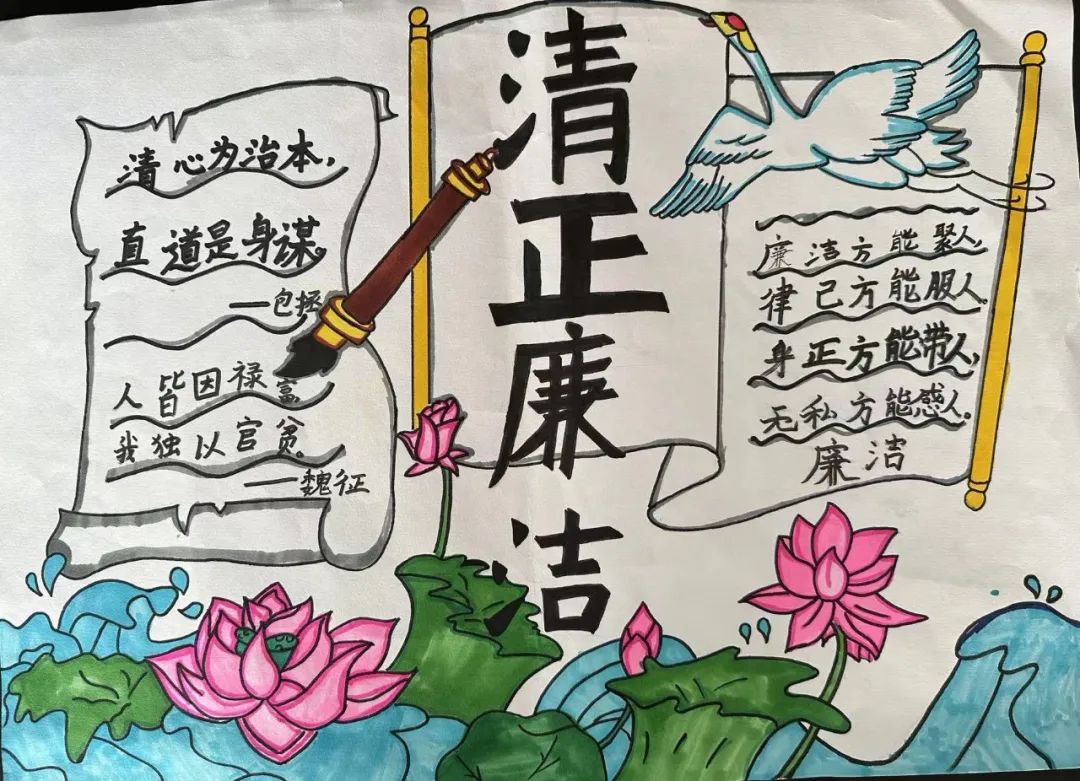 清正廉洁
清心为治本，
直道是身谋。
——包拯
人皆因禄富
我独以官贫。
——魏征
廉洁方能聚人，
律己方能服人。
身正方能带人，
无私方能感人。
廉洁